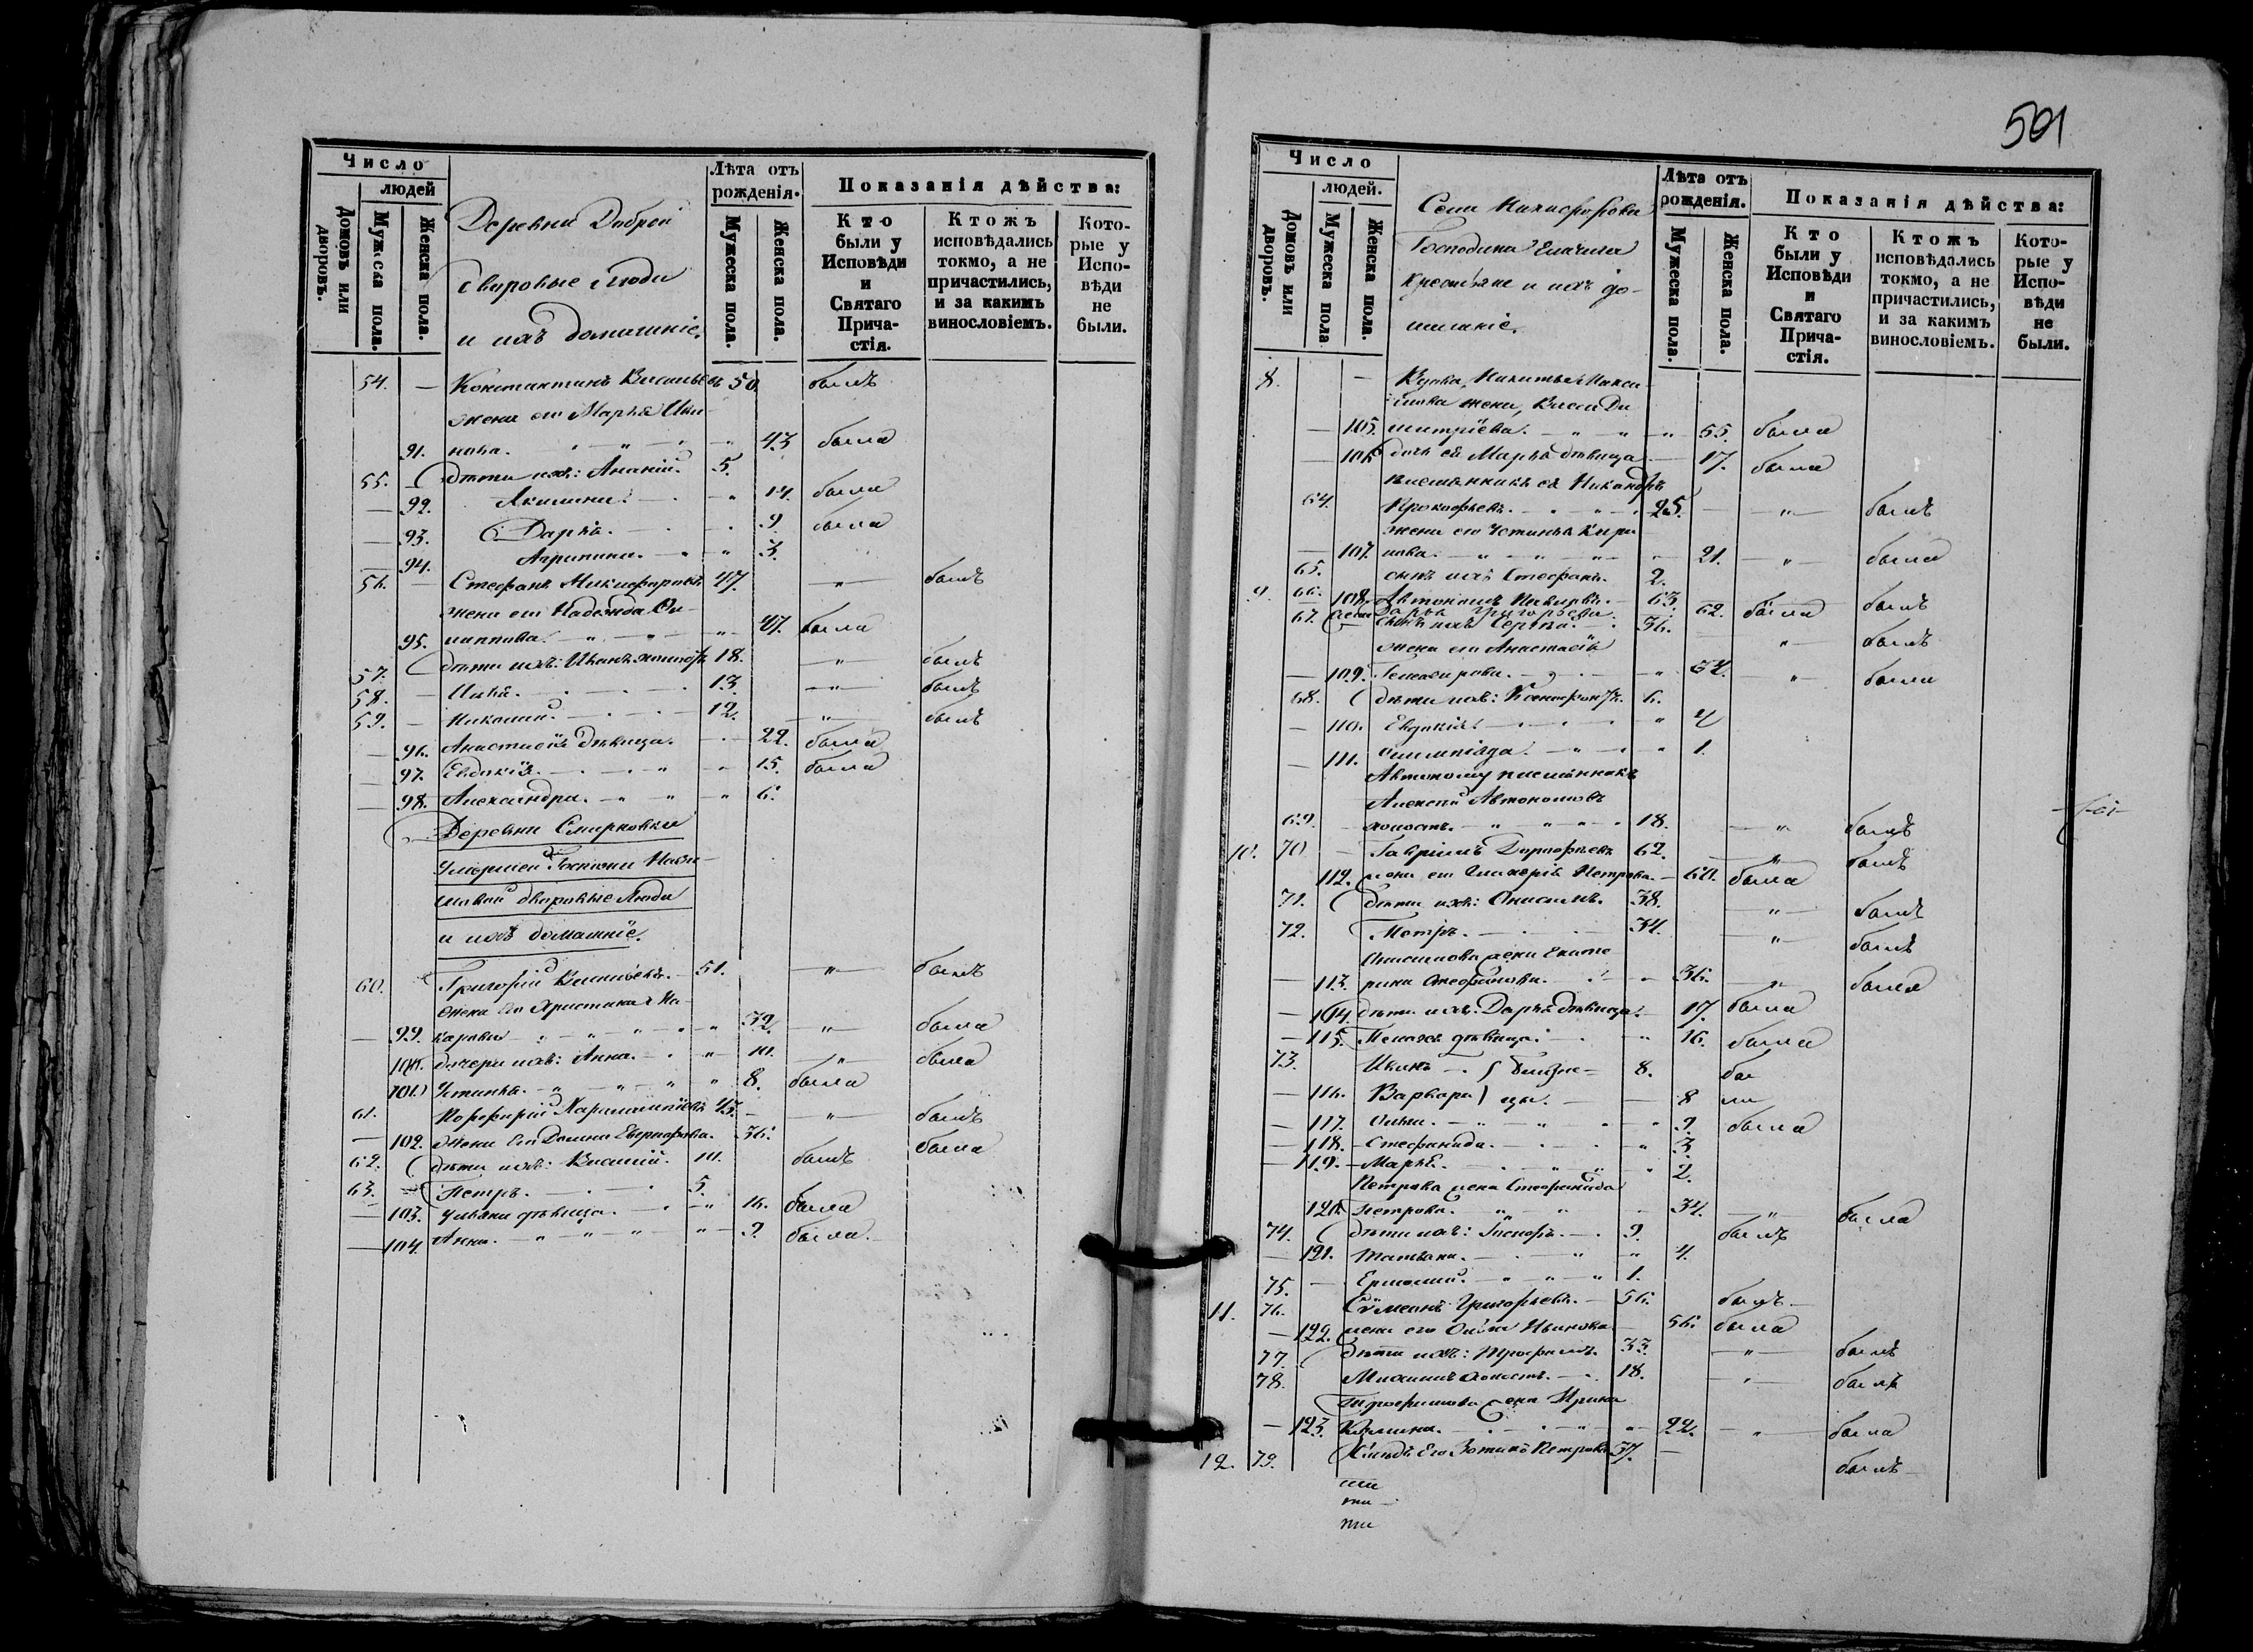 Число
людей
Домовъ или дворовъ.
Мужеска пола.
Женска пола.
Деревни Доброй
дворовые люди
и ихъ домашніе.
Лѣта отъ рожденія.
Мужеска пола.
Женска пола.
Показанія дѣйства:
Кто были у Исповѣди и Святаго Прича-стія.
Ктожъ исповѣдались токмо, а не причастились, и за какимъ винословіемъ.
Кото-рые у Испо-вѣди не были.
54. — Константинъ Василь 50 былъ
жена его Марья Ива-
91. нова. 43 была
55. дѣти ихъ: Ананій. 5.
— 92. Акилина. 14. была
— 93. Дарья. 9 была
— 94. Агрипина. 3.
56. — Стефанъ Никифоровъ 47. — " — былъ
жена его Надежда
95. 47. была
57. дѣти ихъ: Иванъ холостъ 18. — " — былъ
58. — Илья. 13. — " — былъ
59. — Николай. 12. — " — былъ
— 96. Анастасія дѣвица. 22. была
— 97. Евдокія. 15. была
— 98. Александра. 6.
Деревни Смирновки
умершей Госпожи
дворовые Люди
и ихъ домашніе.
60. Григорій Васильевъ. 51. — " — былъ
жена его Христина Ма-
— 99. карова 32. — " — была
100. дочери ихъ: Анна. 10. — " — была
101. Устинья. 8. была
61. Порфирій Харлампіевъ 43. — " — былъ
— 102. жена его Домна 36. была
62. дѣти ихъ: Василій. 10. былъ
63. — Петръ. 5.
— 103. Ульяна дѣвица. 16. была
— 104. Анна. 9. была
501
Число
людей.
Домовъ или дворовъ.
Мужеска пола
Женска пола.
Села Никифорова
Господина
крестьяне и ихъ до-
машніе.
Лѣта отъ рожденія.
Мужеска пола.
Женска пола.
Показанія дѣйства:
Кто были у Исповѣди и Святаго Прича-стія.
Ктожъ исповѣдались токмо, а не причастились, и за какимъ винословіемъ.
Кото-рые у Испо-вѣди не были.
8. — Вдова, Никиты Макси-
мова жена, Васса Ди
— 105. митріева. 55. была
— 106 дочь ея Марья дѣвица 17. была
племянникъ ея Никандръ
64. Прокофьевъ. 25. — " — былъ
жена его Устинья Кири
— 107. лова. 21. — " — была
65. сынъ ихъ Стефанъ. 2.
9. 66. Автономъ 63. былъ
108. жена Дарья Григорьева 62. была
67. сынъ ихъ Сергѣй. 36. — " — былъ
жена его Анастасія
— 109. 32. — " — была
68. дѣти ихъ: Ксенофонтъ. 6.
— 110. Евдокія. 4
— 111. Олимпіада. 1.
Автоному племянникъ
Алексѣй Автономовъ
69. холостъ. 18. — " — былъ
10. 70 — Гавріилъ Дорофѣевъ 62. — " — былъ
112. жена его Гликерія Петрова. 60. была
71. дѣти ихъ: Анисимъ. 38. — " — былъ
72. Петръ. 34. — " — былъ
Анисимова жена Екате
— 113. рина Стефанова. 36. — " — была
— 114. дѣти ихъ: Дарья дѣвица. 17. была
— 115. Пелагея дѣвица. 16. была
73. Иванъ близне= 8. бы
— 116. Варвара цы. 8 ли
— 117. Анна. 9. была
— 118. — Стефанида. 3.
— 119. — Марья. 2.
Петрова жена Стефанида
120. Петрова. 34. — " — была
74. дѣти ихъ: 9. былъ
— 121. Татьяна. 4.
75. — Ермолай. 1.
11. 76. Сѵмеонъ Григорьевъ. 56. былъ
— 122. жена его Анна Иванова 56. была
77. дѣти ихъ: Трофимъ. 33. — " — былъ
78. Михаилъ холостъ. 18. — " — былъ
Трофимова жена Ирина
— 123. Козмина. 22. — " — была
12. 79. Его Зотикъ Петровъ 37. — былъ